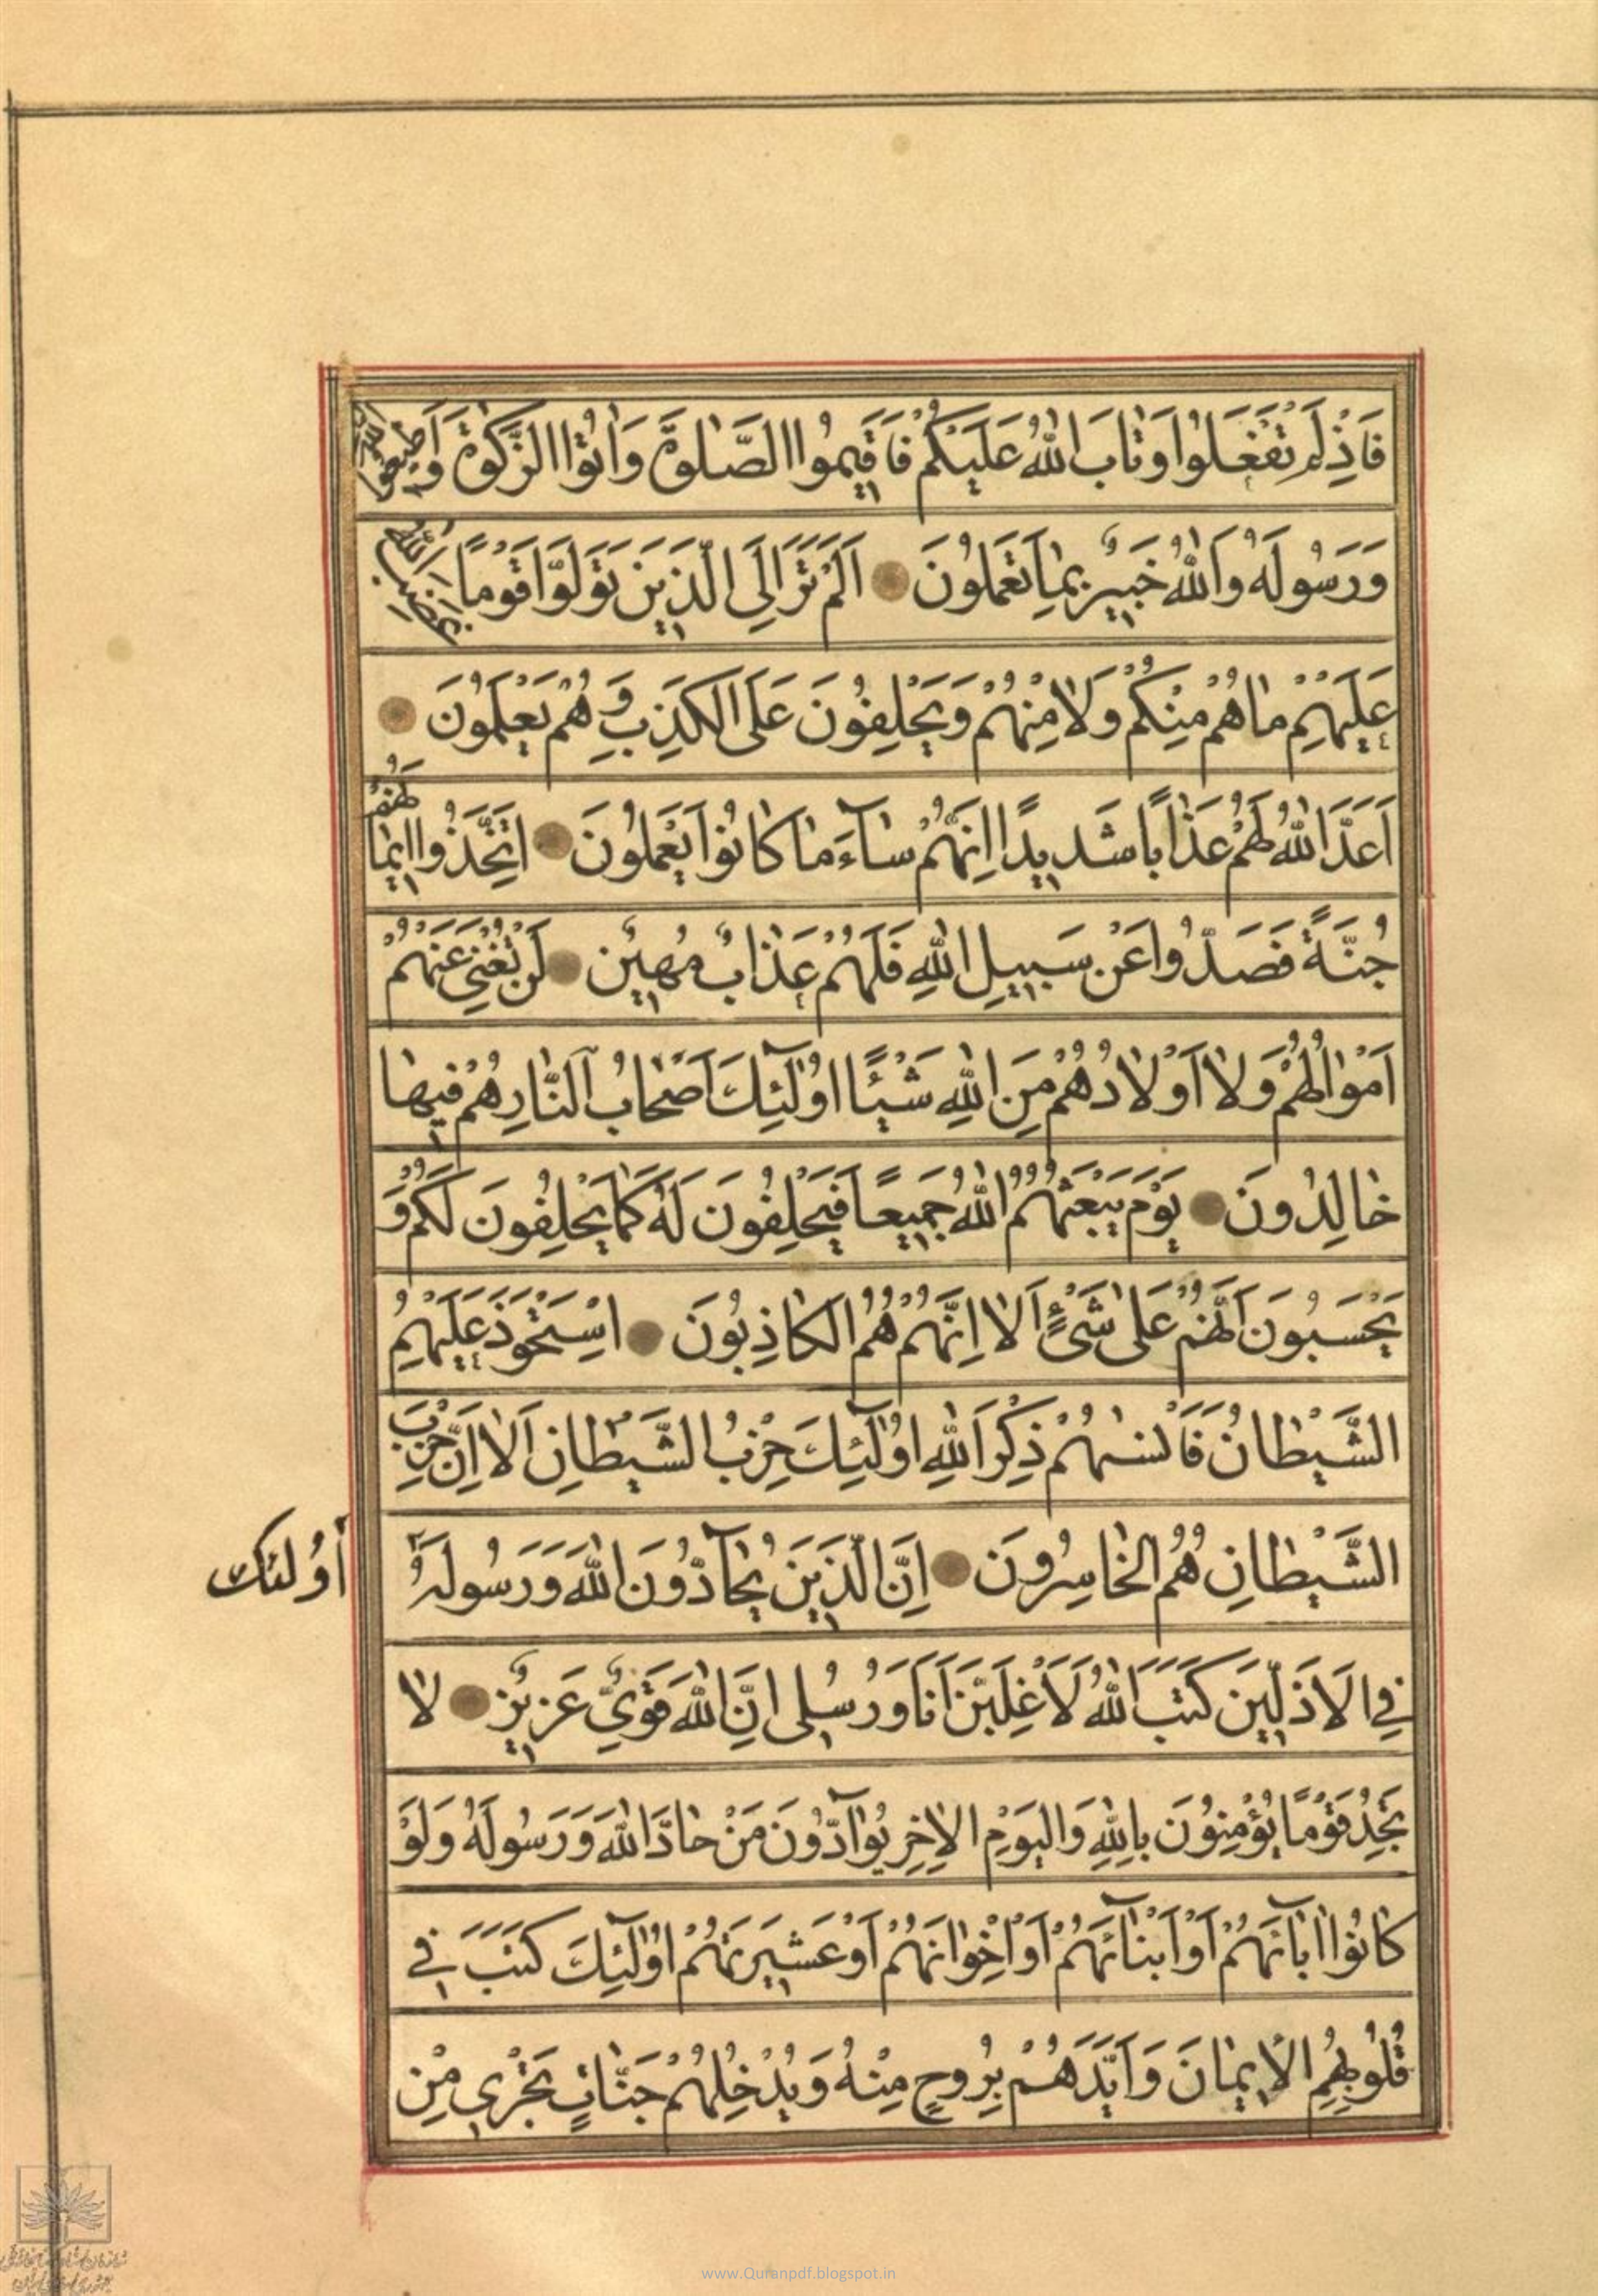 فَاِذْ لَمْ تَفْعَلُوا وَتابَ اللّٰهُ عَلَيْكُمْ فَاَقيمُوا الصَّلٰوةَ وَاٰتُوا الزَّكٰوةَ وَاَطيعُوا اللّٰهَ
وَرَسُولَهُ وَاللّٰهُ خَبيرٌ بِمٰا تَعْمَلُونَ اَلَمْ تَرَ اِلَى الَّذينَ تَوَلَّوْا قَوْمًا غَضِبَ اللّٰهُ
عَلَيْهِمْ مٰا هُمْ مِنْكُمْ وَلٰا مِنْهُمْ وَيَحْلِفُونَ عَلَى الْكَذِبِ وَهُمْ يَعْلَمُونَ
اَعَدَّ اللّٰهُ لَهُمْ عَذٰابًا شَديدًا اِنَّهُمْ سٰآءَ مٰا كٰانُوا يَعْمَلُونَ اِتَّخَذُوا اَيْمٰانَهُمْ
جُنَّةً فَصَدُّوا عَنْ سَبيلِ اللّٰهِ فَلَهُمْ عَذٰابٌ مُهينٌ لَنْ تُغْنِيَ عَنْهُمْ
اَمْوٰالُهُمْ وَلٰا اَوْلٰادُهُمْ مِنَ اللّٰهِ شَيْئًا اُولٰٓئِكَ اَصْحٰابُ النّٰارِ هُمْ فيهٰا
خٰالِدُونَ يَوْمَ يَبْعَثُهُمُ اللّٰهُ جَميعًا فَيَحْلِفُونَ لَهُ كَمٰا يَحْلِفُونَ لَكُمْ وَ
يَحْسَبُونَ اَنَّهُمْ عَلٰى شَىْءٍ اَلٰا اِنَّهُمْ هُمُ الْكٰاذِبُونَ اِسْتَحْوَذَ عَلَيْهِمُ
الشَّيْطٰانُ فَاَنْسٰيهُمْ ذِكْرَ اللّٰهِ اُولٰٓئِكَ حِزْبُ الشَّيْطٰانِ اَلٰا اِنَّ حِزْبَ
الشَّيْطٰانِ هُمُ الْخٰاسِرُونَ اِنَّ الَّذينَ يُحٰآدُّونَ اللّٰهَ وَرَسُولَهُ
أُولئك
فِي الْاَذَلّينَ كَتَبَ اللّٰهُ لَاَغْلِبَنَّ اَنَا وَرُسُلى اِنَّ اللّٰهَ قَوِيٌّ عَزيزٌ لٰا
تَجِدُ قَوْمًا يُؤْمِنُونَ بِاللّٰهِ وَالْيَوْمِ الْاٰخِرِ يُوٰآدُّونَ مَنْ حٰادَّ اللّٰهَ وَرَسُولَهُ وَلَوْ
كٰانُوا اٰبٰآئَهُمْ اَوْ اَبْنٰآئَهُمْ اَوْ اِخْوٰانَهُمْ اَوْ عَشيرَتَهُمْ اُولٰٓئِكَ كَتَبَ في
قُلُوبِهِمُ الْايمٰانَ وَاَيَّدَهُمْ بِرُوحٍ مِنْهُ وَيُدْخِلُهُمْ جَنّٰاتٍ تَجْرى مِنْ
www.Quranpdf.blogspot.in